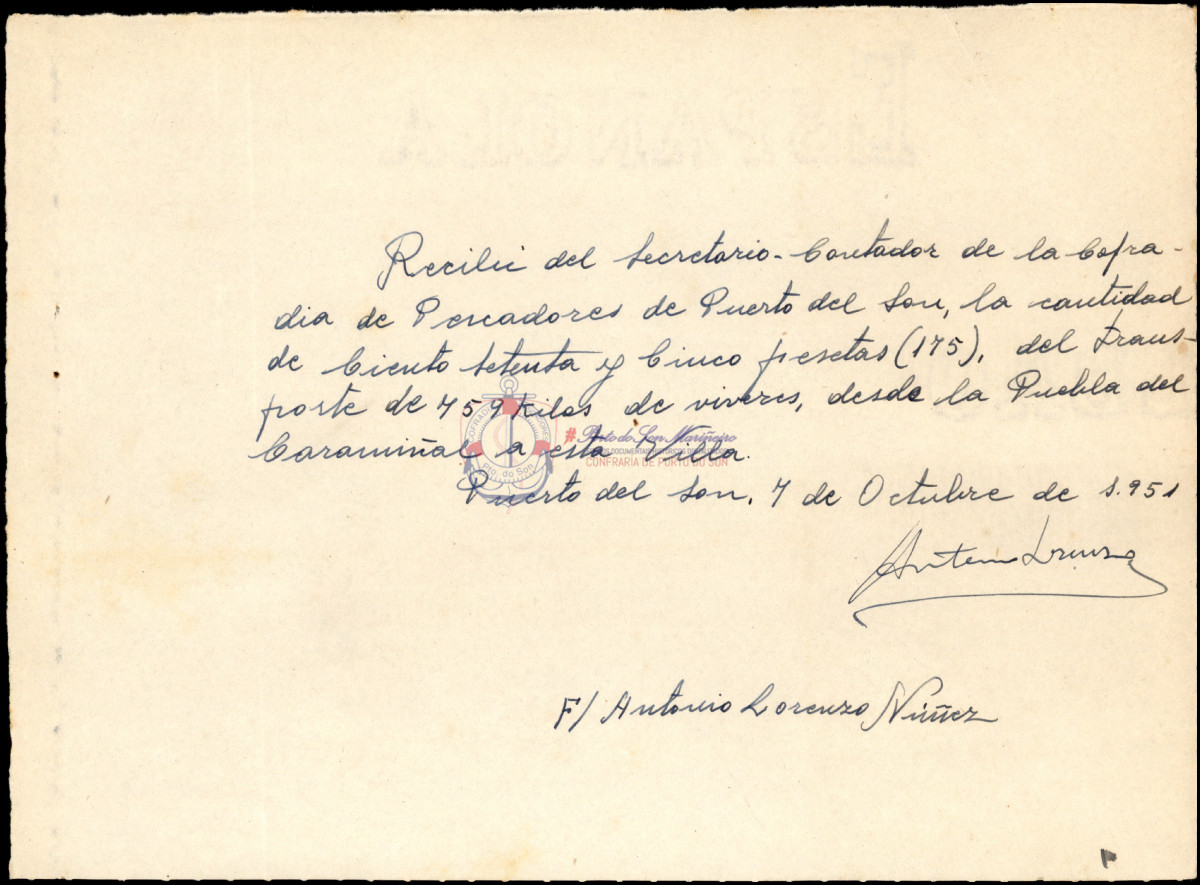 Recibí del Secretario-Contador de la Cofra-
dia de Pescadores de Puerto del Son, la cantidad
de Ciento setenta y Cinco pesetas (175), del trans-
porte de 759 Kilos de viveres, desde la Puebla del
Caramiñal a esta Villa.
Puerto del Son, 7 de Octubre de 1.951
F/ Antonio Lorenzo Núñez
Pto. do Son
# Porto do Son Mariñeiro
CONFRARÍA DE PORTO DO SON
ESPAÑOLA